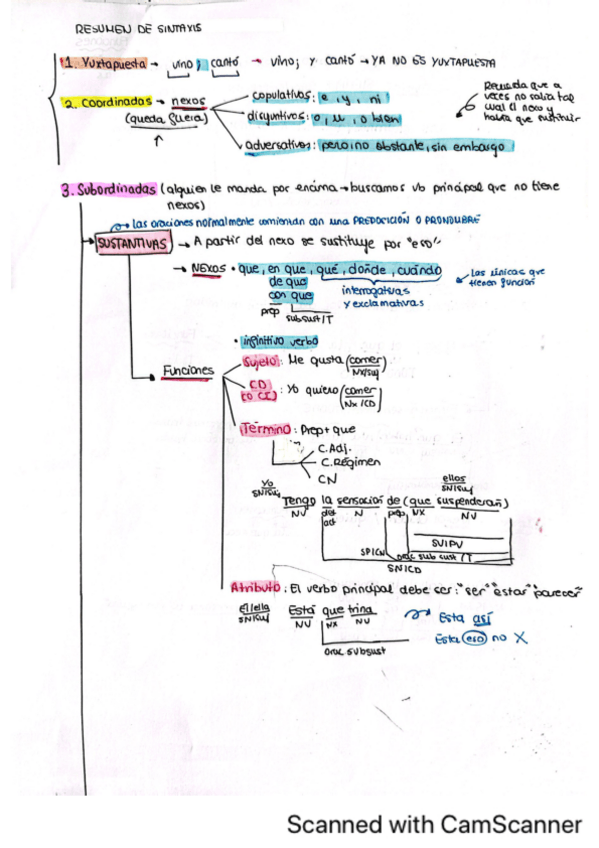 RESUMEN DE SINTAXIS
1. Yuxtapuesta → vino; cantó → vino; y cantó → YA NO ES YUXTAPUESTA
2. Coordinadas → nexos
(queda fuera)
copulativas: e, y, ni
disyuntivos: o, u, o bien
adversativos: pero, no obstante, sin embargo
Recuerda que a
veces no salía tal
cual el nexo y
había que sustituir
3. Subordinadas (alguien le manda por encima → buscamos vb principal que no tiene
nexos)
las oraciones normalmente comienzan con una PREPOSICIÓN O PRONOMBRE
SUSTANTIVAS → A partir del nexo se sustituye por "eso"
→ NEXOS • que, en que, qué, dónde, cuándo
de que
con que
prep
subsust/T
interrogativas
y exclamativas
Las únicas que
tienen función
• infinitivo verbo
Funciones
Sujeto: Me gusta (comer)
Nx/Suj
CD
(o CI): Yo quiero (comer)
Nx/CD
Término: Prep + que
C.Adj.
C.Régimen
CN
Yo
SN/Suj
ellos
SN/Suj
Tengo la sensación de (que suspenderán)
NV det N prep NX NV
act
SV/PV
SP/CN orac sub sust/T
SN/CD
Atributo: El verbo principal debe ser: "ser" "estar" "parecer"
Él/ella
SN/Suj
Está que trina
NV NX NV
orac subsust
Esta así
Esta eso no X
Scanned with CamScanner